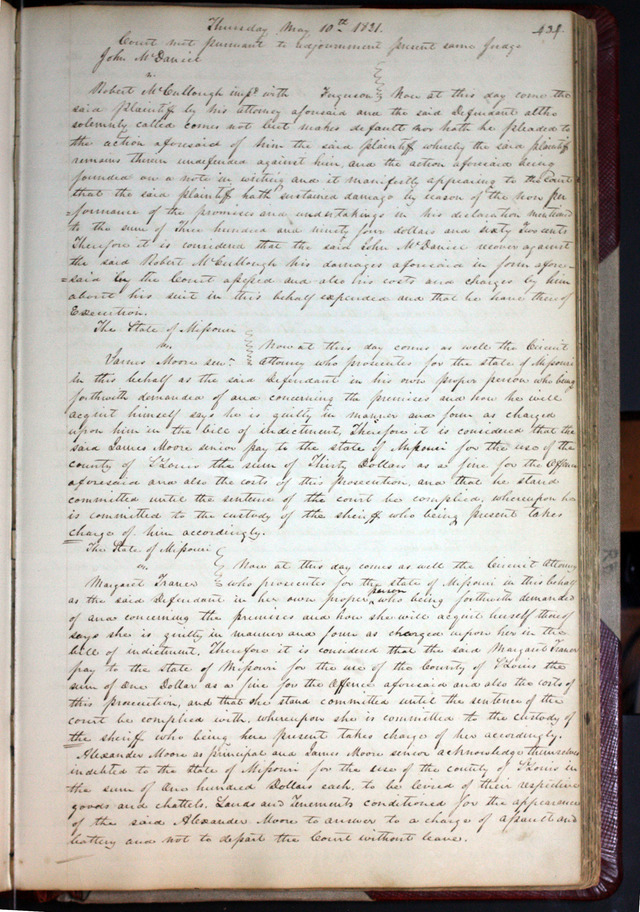 Thursday May 10th 1821.
434
Court met pursuant to adjournment present same Judge
John McDaniel
vs.
Robert McCullough impd with Ferguson Now at this day come the
said plaintiff by his attorney aforesaid and the said Defendant altho
solemnly called comes not but makes default nor hath he pleaded to
the action aforesaid of him the said plaintiff whereby the said plaintiff
remains therein undefended against him, and the action aforesaid being
founded on a note in writing and it manifestly appearing to the Court
that the said plaintiff hath sustained damage by reason of the non per
=formance of the promises and undertakings in his declaration mentioned
to the sum of Three hundred and ninety four dollars and sixty two cents
Therefore it is considered that the said John McDaniel recover against
the said Robert McCullough his damages aforesaid in form afore
=said by the Court assessed and also his costs and charges by him
about his suit in this behalf expended and that he have thereof
Execution.
The State of Missouri
vs.
James Moore senr. Now at this day comes as well the Circuit
Attorney who prosecutes for the state of Missouri
in this behalf as the said Defendant in his own proper person who being
forthwith demanded of and concerning the premises and how he will
acquit himself says he is guilty in manner and form as charged
upon him in the bill of indictment, Therefore it is considered that the
said James Moore senior pay to the state of Missouri for the use of the
county of St Louis the sum of Thirty Dollars as a fine for the Offence
aforesaid and also the costs of this prosecution, and that he stand
committed until the sentence of the court be complied, whereupon he
is committed to the custody of the sheriff who being present takes
charge of him accordingly.
The State of Missouri
vs.
Margaret Now at this day comes as well the Circuit Attorney
who prosecutes for the state of Missouri in this behalf
as the said Defendant in her own proper person who being forthwith demanded
of and concerning the premises and how she will acquit herself thereof
says she is guilty in manner and form as charged upon her in the
bill of indictment, Therefore it is considered that the said Margaret
pay to the state of Missouri for the use of the County of St Louis the
sum of One Dollar as a fine for the Offence aforesaid and also the costs of
this prosecution, and that she stand committed until the sentence of the
court be complied with, whereupon she is committed to the custody of
the sheriff who being here present takes charge of her accordingly.
Alexander Moore as principal and James Moore senior acknowledge themselves
indebted to the state of Missouri for the use of the county of St Louis in
the sum of One hundred Dollars each, to be levied of their respective
goods and chattels, Lands and Tenements conditioned for the appearance
of the said Alexander Moore to answer to a charge of assault and
battery and not to depart the Court without leave.